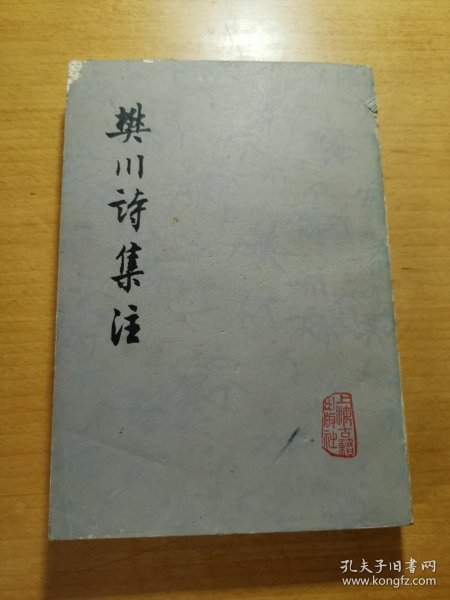 樊川詩集注
上海古籍
出版社
孔夫子旧书网
www.kongfz.com